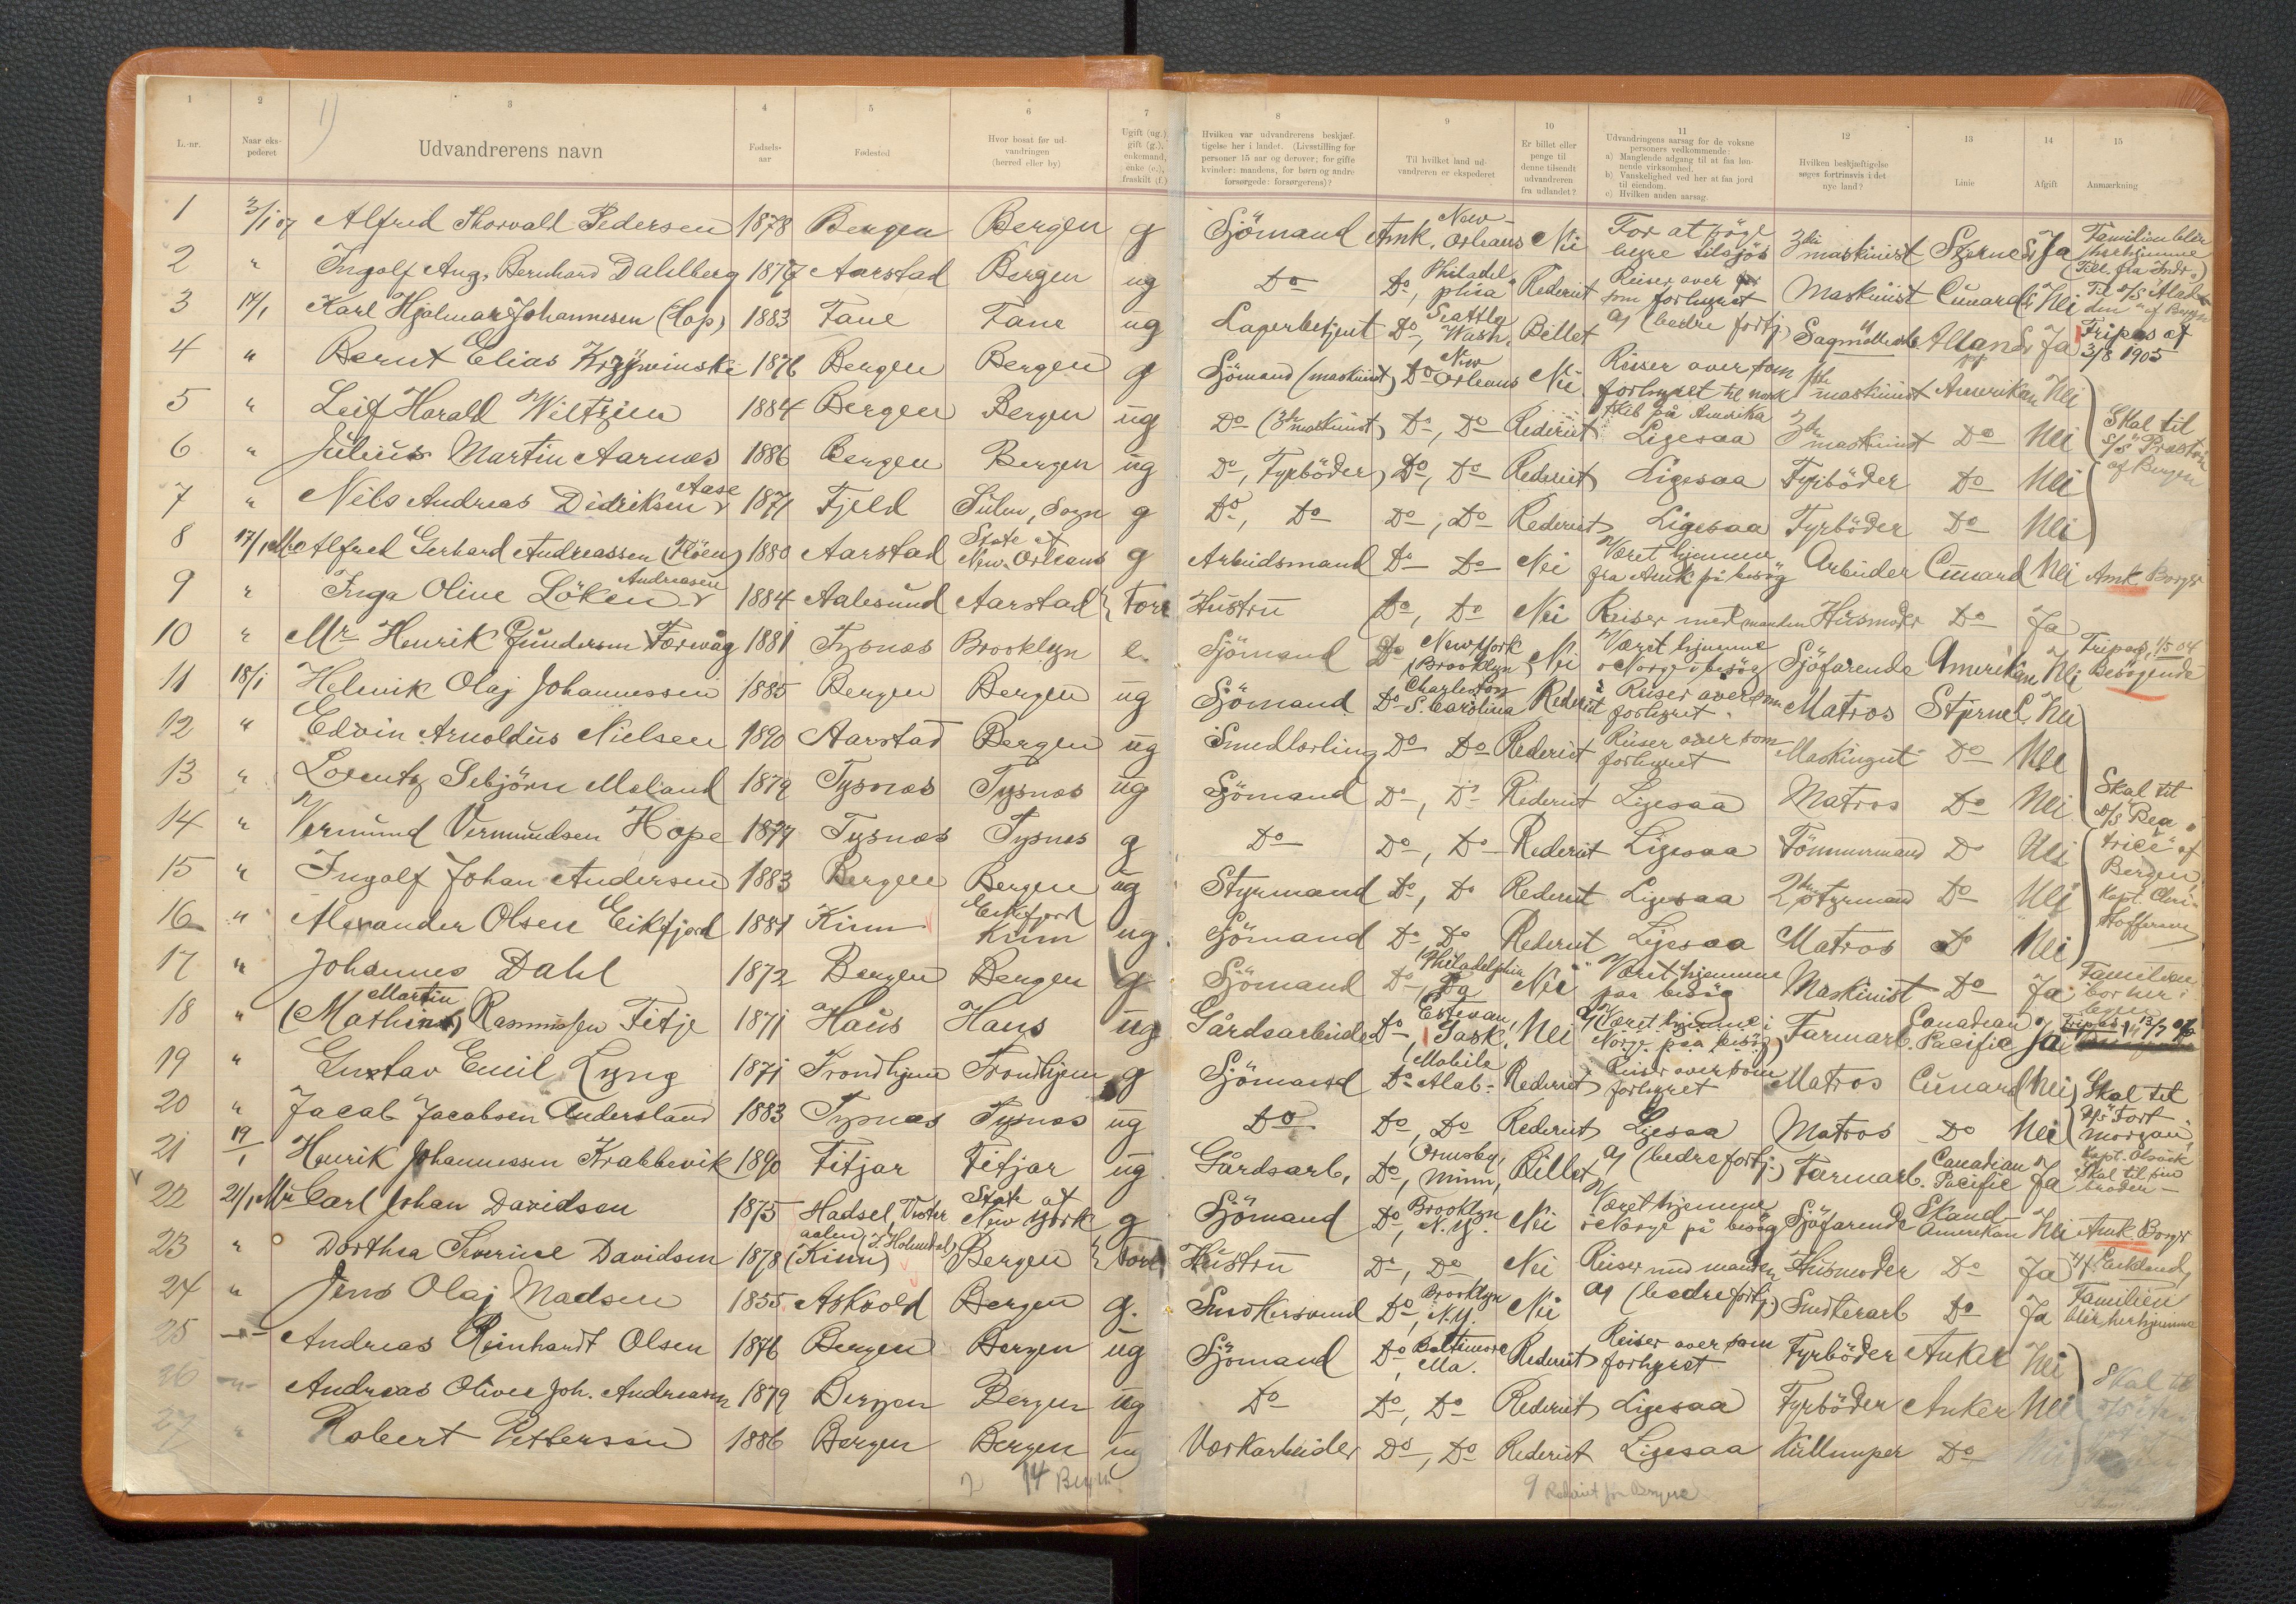 1 2 3 4 5 6 7 8 9 10 11 12 13 14 15
L.-nr. | Naar ekspederet | Udvandrerens navn | Fødselsaar | Fødested | Hvor bosat før udvandringen (herred eller by) | Ugift (ug.), gift (g.), enkemand, enke (e.), fraskilt (f.) | Hvilken var udvandrerens beskjæftigelse her i landet. (Livsstilling for personer 15 aar og derover; for gifte kvinder: mandens, for børn og andre forsørgede: forsørgerens)? | Til hvilket land udvandreren er ekspederet | Er billet eller penge til denne tilsendt udvandreren fra udlandet? | Udvandringens aarsag for de voksne personers vedkommende: a) Manglende adgang til at faa lønnende virksomhed. b) Vanskelighed ved her at faa jord til eiendom. c) Hvilken anden aarsag. | Hvilken beskjæftigelse søges fortrinsvis i det nye land? | Linie | Afgift | Anmærkning
1 3/1 07 Alfred Thorvald Pedersen 1878 Bergen Bergen g Sjömand Amk. New Orleans Nei For at söge hyre tilsjös 3die maskinist Stjerne L. Ja Familien blir herhjemme
2 " Ingolf Aug. Bernhard Dahlberg 1877 Aarstad Bergen ug Do Do, Philadelphia Rederiet Reiser over som forhyret Maskinist Cunard Nei
3 14/1 Karl Hjalmar Johannesen (Hop) 1883 Fane Fane ug Lagerbetjent Do, Seattle Wash. Billet a) (bedre fortj.) Allan L. Ja Fripas af 3/8 1905
4 " Bernt Elias 1876 Bergen Bergen g Sjömand (maskinist) Do New Orleans Nei Reiser over som forhyret til norsk skib på Amerika maskinist Amerikan Nei
5 " Leif Harald Wiltzien 1884 Bergen Bergen ug Do (3de maskinist) Do, Do Rederiet Ligesaa 3de maskinist Do Nei Skal til S/S
6 " Julius Martin Aarnæs 1886 Bergen Bergen ug Do, Fyrböder Do, Do Rederiet Ligesaa Fyrböder Do Nei af Bergen
7 " Nils Andreas Didriksen Aase 1871 Fjeld Sulen, Sogn g Do, Do Do, Do Rederiet Ligesaa Fyrböder Do Nei
8 17/1 Mr Alfred Gerhard Andreassen 1880 Aarstad State of New Orleans g Arbeidsmand Do Do Nei Været hjemme fra Amk på besög Arbeider Cunard Nei Amk Borger
9 " Inga Oline Löken Andreasen 1884 Aalesund Aarstad Hustru Do, Do Nei Reiser med manden Husmoder Do Ja
10 " Mr Henrik Gundersen 1881 Tysnæs Brooklyn e. Sjömand Do New York (Brooklyn) Nei Været hjemme i Norge på besög Sjöfarende Amerikan Nei Fripas Besögende
11 18/1 Helmik Olaj Johannessen 1885 Bergen Bergen ug Sjömand Do Charleston S. Carolina Rederiet Reiser over som forhyret Matros Stjerne L. Nei
12 " Edvin Arnoldus Nielsen 1890 Aarstad Bergen ug Smedlærling Do Do Rederiet Reiser over som forhyret Maskingut Do Nei
13 " Lorentz Sebjörn Meland 1879 Tysnæs Tysnæs ug Sjömand Do, Do Rederiet Ligesaa Matros Do Nei Skal til
14 " Vermund Vermundsen Hope 1877 Tysnæs Tysnæs g Do Do, Do Rederiet Ligesaa Tömmermand Do Nei S/S "Beatrice" af
15 " Ingolf Johan Andersen 1883 Bergen Bergen ug Styrmand Do, Do Rederiet Ligesaa 2den styrmand Do Nei Bergen
16 " Alexander Olsen Eikefjord 1881 Kinn Eikefjord Kinn ug. Sjömand Do Do Rederiet Ligesaa Matros Do Nei Kapt.
17 " Johannes Dahl 1872 Bergen Bergen g Sjömand Do, Philadelphia Pa Nei Været hjemme paa besög Maskinist Do Ja Familien bor her i
18 " (Mathias) Martin Rasmussen Titje 1871 Haus Haus ug Gårdsarbeider Do, Estevan, Sask. Nei Været hjemme i Norge paa besög Farmarb. Canadian Pacific Ja Fripas
19 " Gustav Emil Lyng 1871 Trondhjem Trondhjem g Sjömand Do Mobile Alab. Rederiet Reiser over som forhyret Matros Cunard Nei Skal til
20 " Jacob Jacobsen Andersland 1883 Tysnæs Tysnæs ug Do Do, Do Rederiet Ligesaa Matros Do Nei S/S "Fort Morgan"
21 19/1 Henrik Johannessen Krabbevik 1890 Fitjar Fitjar ug Gårdsarb. Do, Ormsby, Minn. Billet a) (bedre fortj.) Farmarb. Canadian Pacific Ja Skal til sin broder
22 21/1 Mr Carl Johan Davidsen 1875 Hadsel, Vesteraalen State of New York g Sjömand Do, Brooklyn N.Y. Nei Været hjemme i Norge på besög Sjöfarende Skand Amerikan Nei Amk Borger
23 " Dorthea Severine Davidsen 1878 (Kinn) Bergen Hustru Do, Do Nei Reiser med manden Husmoder Do Ja
24 " Jens Olaj Madsen 1855 Askvold Bergen g. Snedkersvend Do, Brooklyn N.Y. Nei a) (bedre fortj.) Snedkerarb Do Ja Familien blir herhjemme
25 -"- Andreas Reinhardt Olsen 1876 Bergen Bergen ug Sjömand Do, Baltimore Ma. Rederiet Reiser over som forhyret Fyrböder Anker Nei
26 -"- Andreas Oliver Joh. Andreasen 1879 Bergen Bergen ug Do Do, Do Rederiet Ligesaa Fyrböder Anker Nei Skal til
27 " Robert Pettersen 1886 Bergen Bergen ug Værkarbeider Do, Do Rederiet Ligesaa Kullemper Do Nei
14 Bergen
9 Rederiet for Bergen